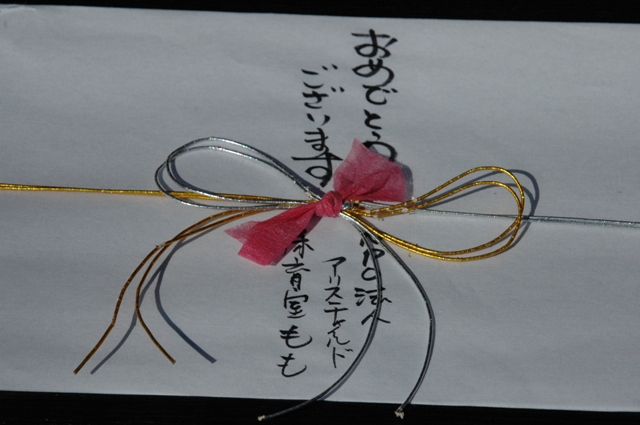 おめでとう
ございます
法人
アリスチャイルド
育室もも